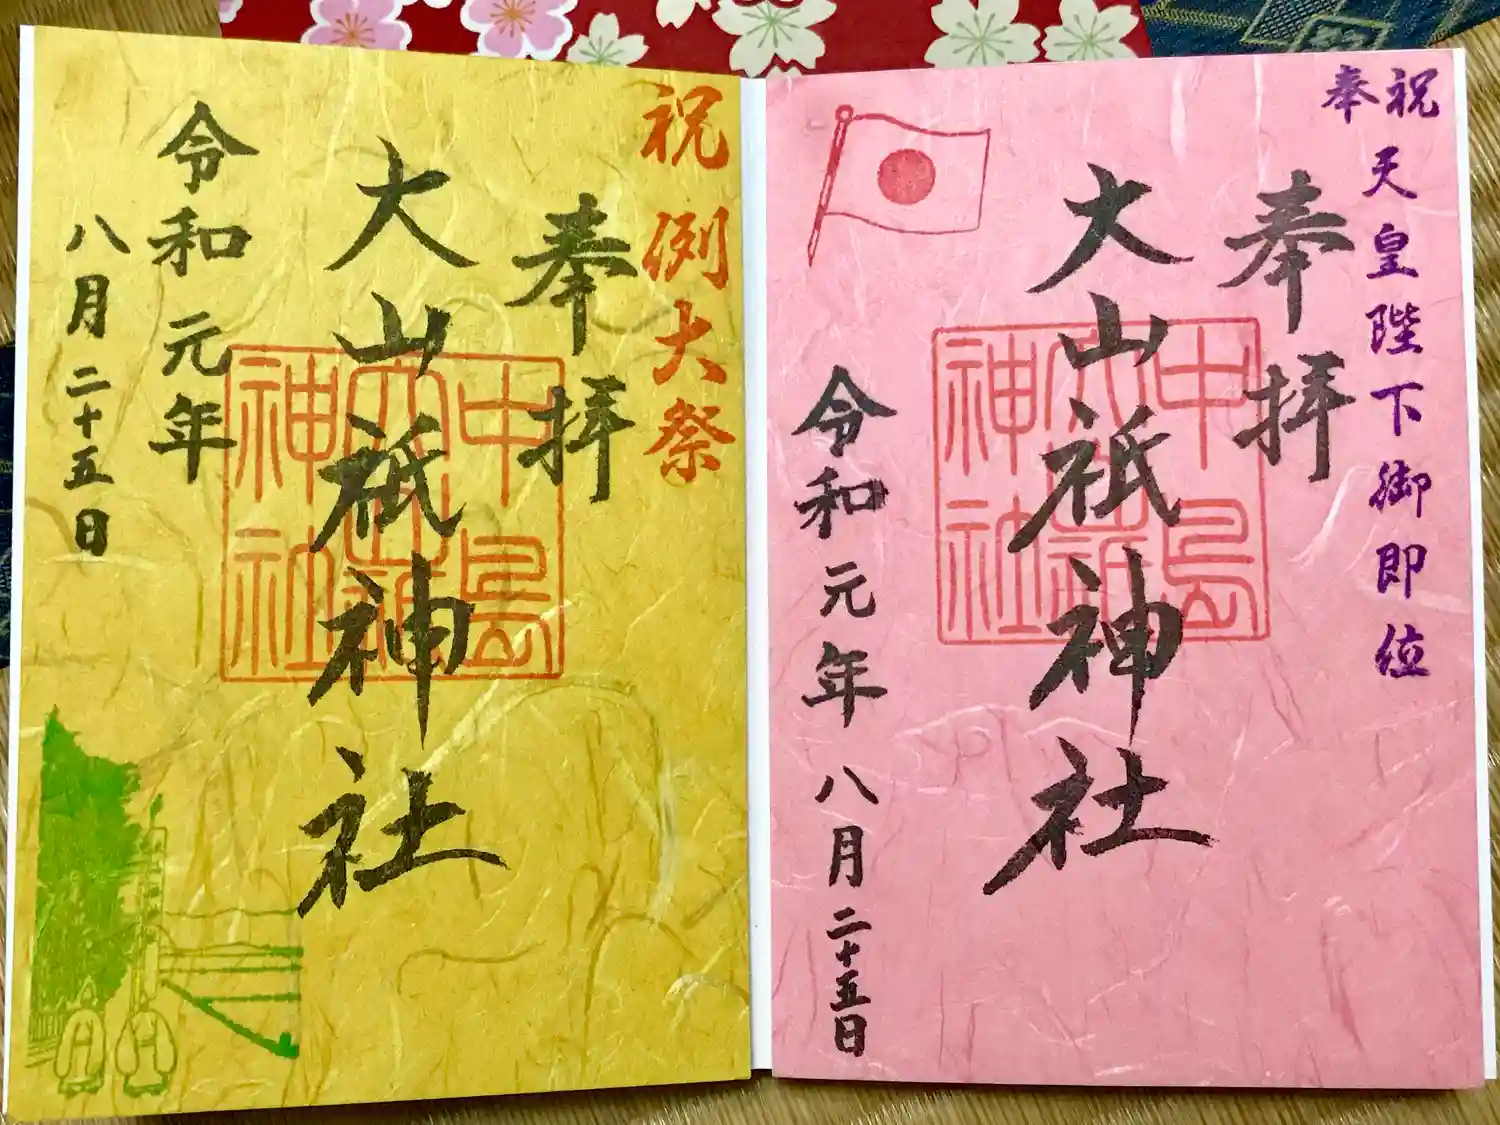 奉祝
天皇陛下御即位
奉拝
大山祇神社
中島
大山祇
神社
令和元年八月二十五日
祝例大祭
奉拝
大山祇神社
中島
大山祇
神社
令和元年
八月二十五日